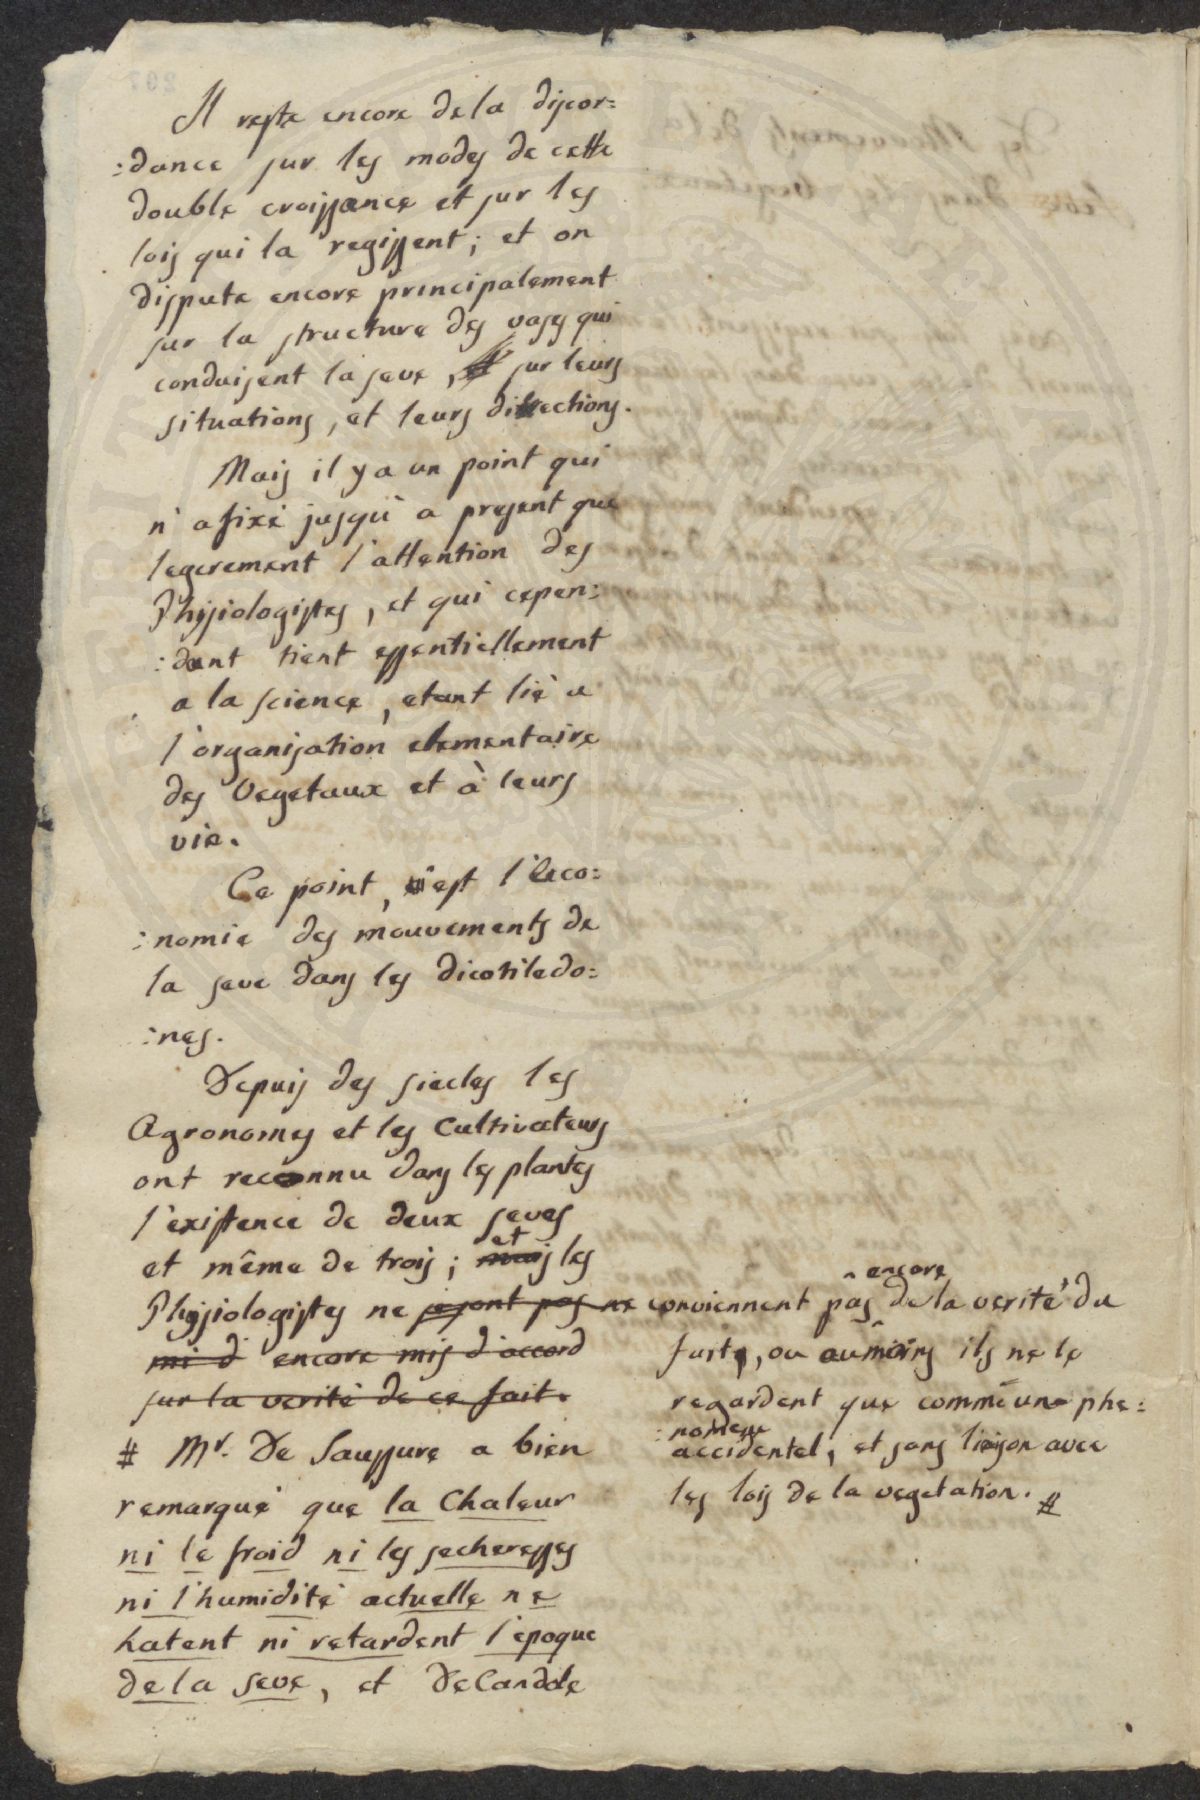 Il reste encore de la discor:
:dance sur les modes de cette
double croissance et sur les
lois qui la regissent; et on
dispute encore principalement
sur la structure des vases qui
conduisent la seve, sur leurs
situations, et leurs directions.
Mais il y a un point qui
n'a fixé jusqu'à present que
legerement l'attention des
Physiologistes, et qui cepen:
:dant tient essentiellement
a la science, etant lié a
l'organisation elementaire
des Vegetaux et à leurs
vie.
Ce point, c'est l'éco:
:nomie des mouvements de
la seve dans les dicotiledo:
:nes.
Depuis des siecles les
Agronomes et les Cultivateurs
ont reconnu dans les plantes
l'existence de deux seves
et même de trois; mais et les
Physiologistes ne se sont pas ne
mi d' encore mis d'accord
sur la verité de ce fait.
conviennent pas encore de la verité du
fait, ou aumoins ils ne le
regardent que comme un phe:
:nomene
accidentel, et sans liaison avec
les lois de la vegetation. #
# Mr. De Saussure a bien
remarqué que la Chaleur
ni le froid ni les secheresses
ni l'humidité actuelle ne
hatent ni retardent l'epoque
de la seve, et DeCandole